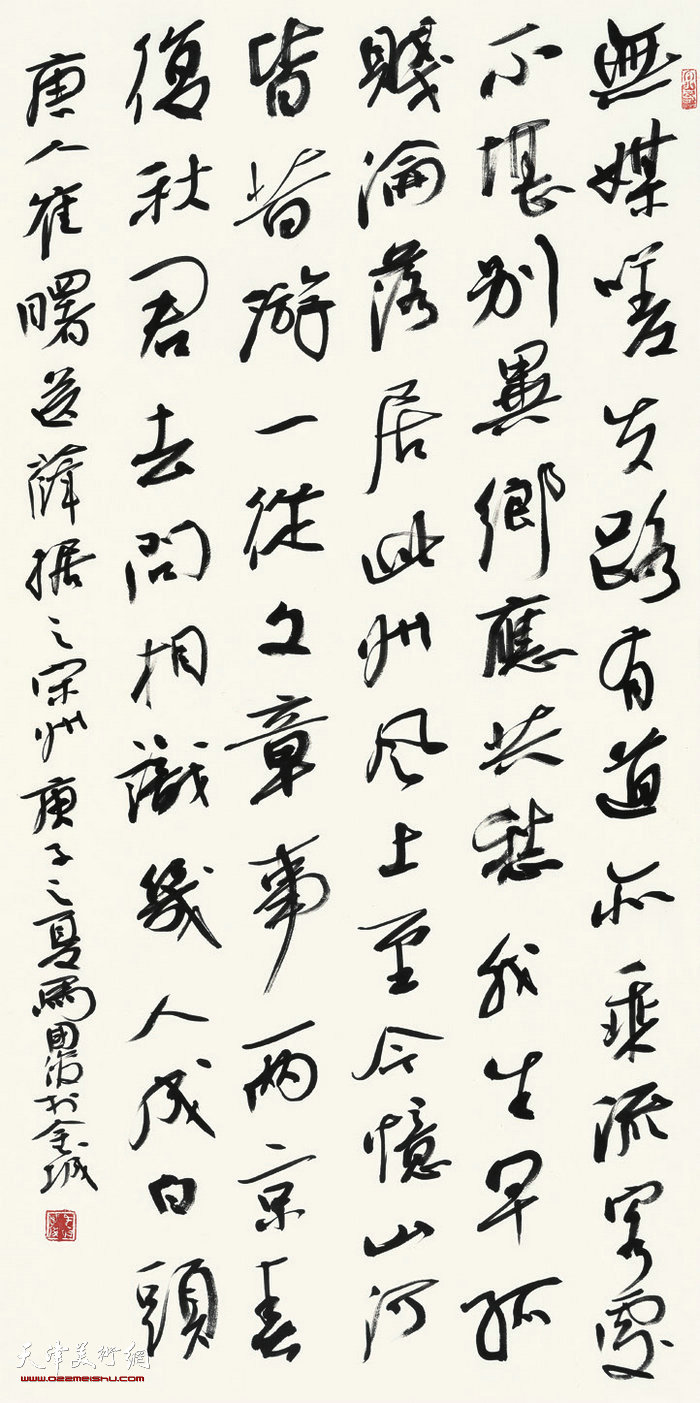 無媒嗟失路有道亦乘流客處
不堪別異鄉應共愁我生早孤
賤淪落居此州風土至今憶山河
皆昔游一從文章事兩京春
復秋君去問相識幾人成白頭
唐人崔曙送薛據之宋州庚子之夏馬國俊於金城
天津美術網
www.022meishu.com